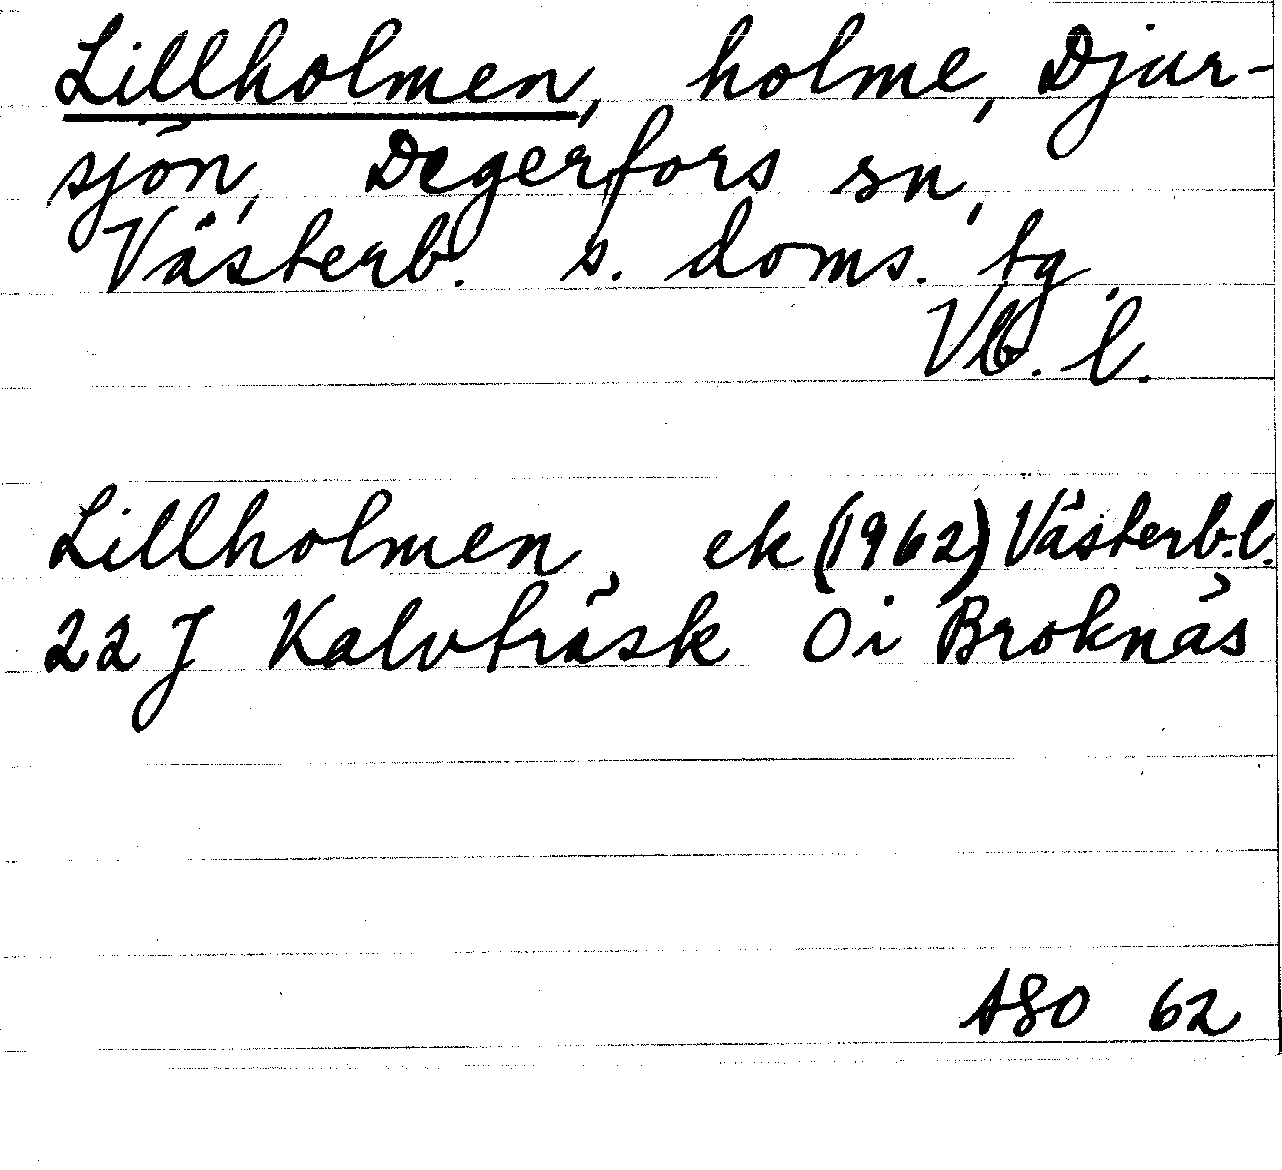 Lillholmen, holme, Djur-
sjön, Degerfors sn,
Västerb. s. doms. tg.
Vb. l.
Lillholmen, ek (1962) Västerb.l.
22 J Kalvträsk Oi Broknäs
ASO 62